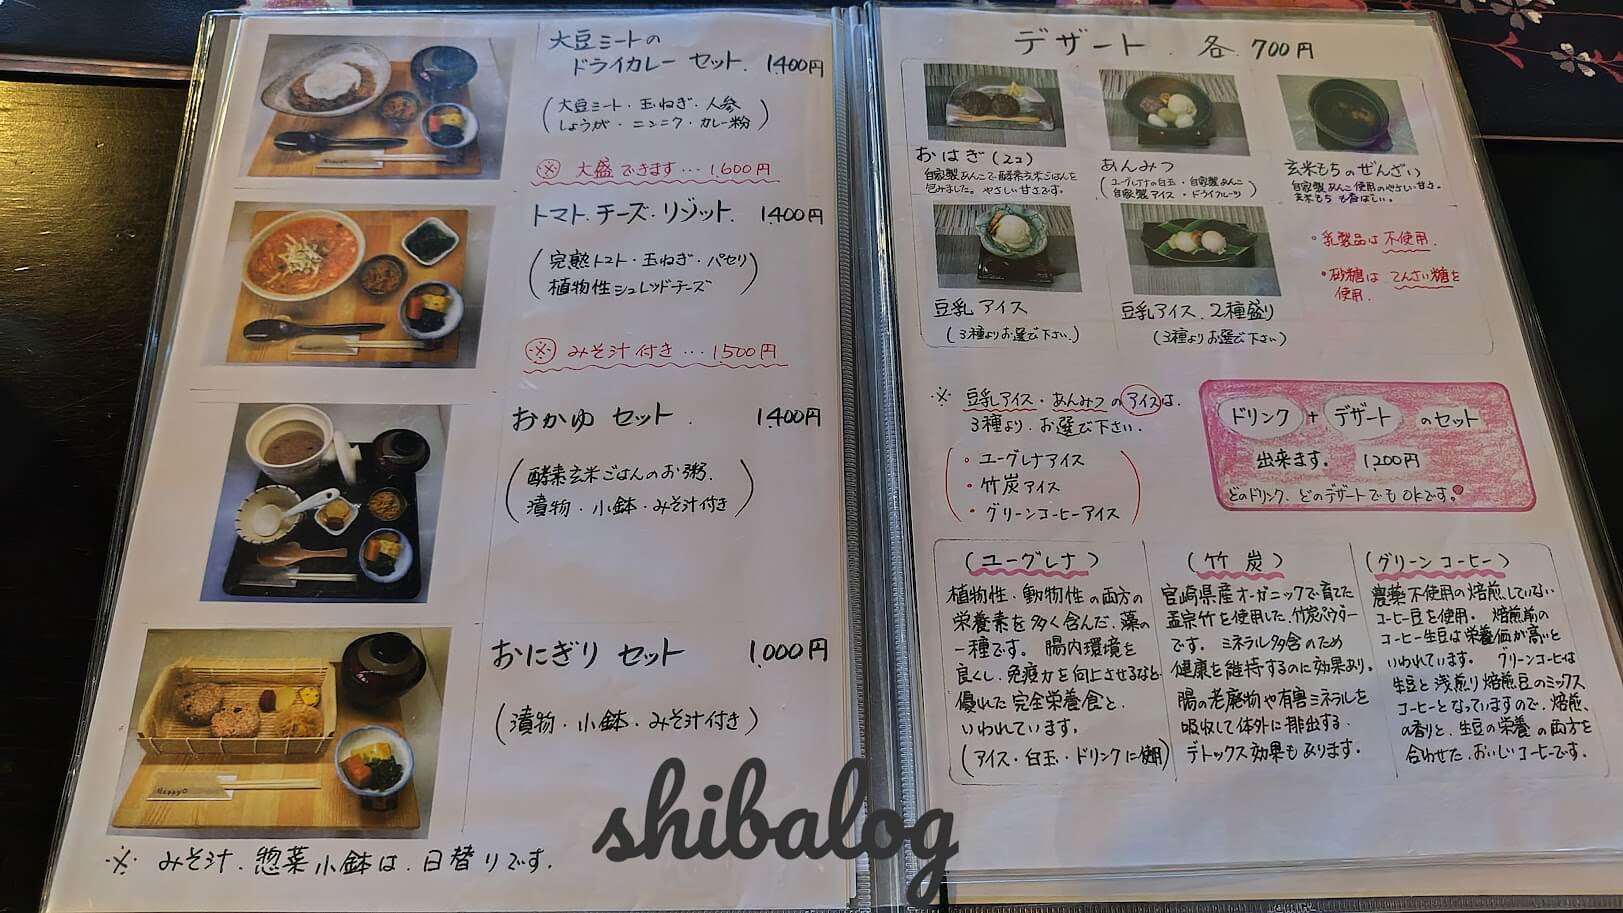 大豆ミートの
ドライカレー セット. 1.400円
(大豆ミート・玉ねぎ・人参
しょうが・ニンニク・カレー粉)
※ 大盛できます…1.600円
トマト.チーズ.リゾット. 1.400円
(完熟トマト・玉ねぎ・パセリ
植物性シュレッドチーズ)
※ みそ汁付き…1.500円
おかゆ セット. 1.400円
(酵素玄米ごはんのお粥.
漬物・小鉢・みそ汁付き)
おにぎり セット 1.000円
(漬物・小鉢・みそ汁付き)
※ みそ汁.惣菜小鉢は.日替りです.
デザート. 各.700円
おはぎ(2コ)
自家製あんこで酵素玄米ごはんを
包みました。やさしい甘さです。
あんみつ
(ユーグレナの白玉・自家製あんこ
自家製アイス・ドライフルーツ)
玄米もちのぜんざい
自家製あんこ使用のやさしい甘さ.
玄米もちも香ばしい.
豆乳アイス
(3種よりお選び下さい.)
豆乳アイス.2種盛り
(3種よりお選び下さい)
・乳製品は不使用.
・砂糖はてんさい糖を
使用.
※ 豆乳アイス・あんみつのアイスは.
3種より.お選び下さい.
・ユーグレナアイス
・竹炭アイス
・グリーンコーヒーアイス
ドリンク + デザート のセット
出来ます. 1.200円
どのドリンク、どのデザートでもOKです。
(ユーグレナ)
植物性・動物性の両方の
栄養素を多く含んだ、藻の
一種です。腸内環境を
良くし、免疫力を向上させるなど
優れた完全栄養食と、
いわれています。
(アイス・白玉・ドリンクに使用)
(竹炭)
宮崎県産オーガニックで育てた
孟宗竹を使用した、竹炭パウダー
です。ミネラル多含のため
健康を維持するのに効果あり。
腸の老廃物や有害ミネラルを
吸収して体外に排出する.
デトックス効果もあります.
(グリーンコーヒー)
農薬不使用の焙煎していない
コーヒー豆を使用. 焙煎前の
コーヒー生豆は栄養価が高いと
いわれています。グリーンコーヒーは
生豆と浅煎り焙煎豆のミックス
コーヒーとなっていますので、焙煎、
の香りと、生豆の栄養の両方を
合わせた、おいしいコーヒーです。
shibalog